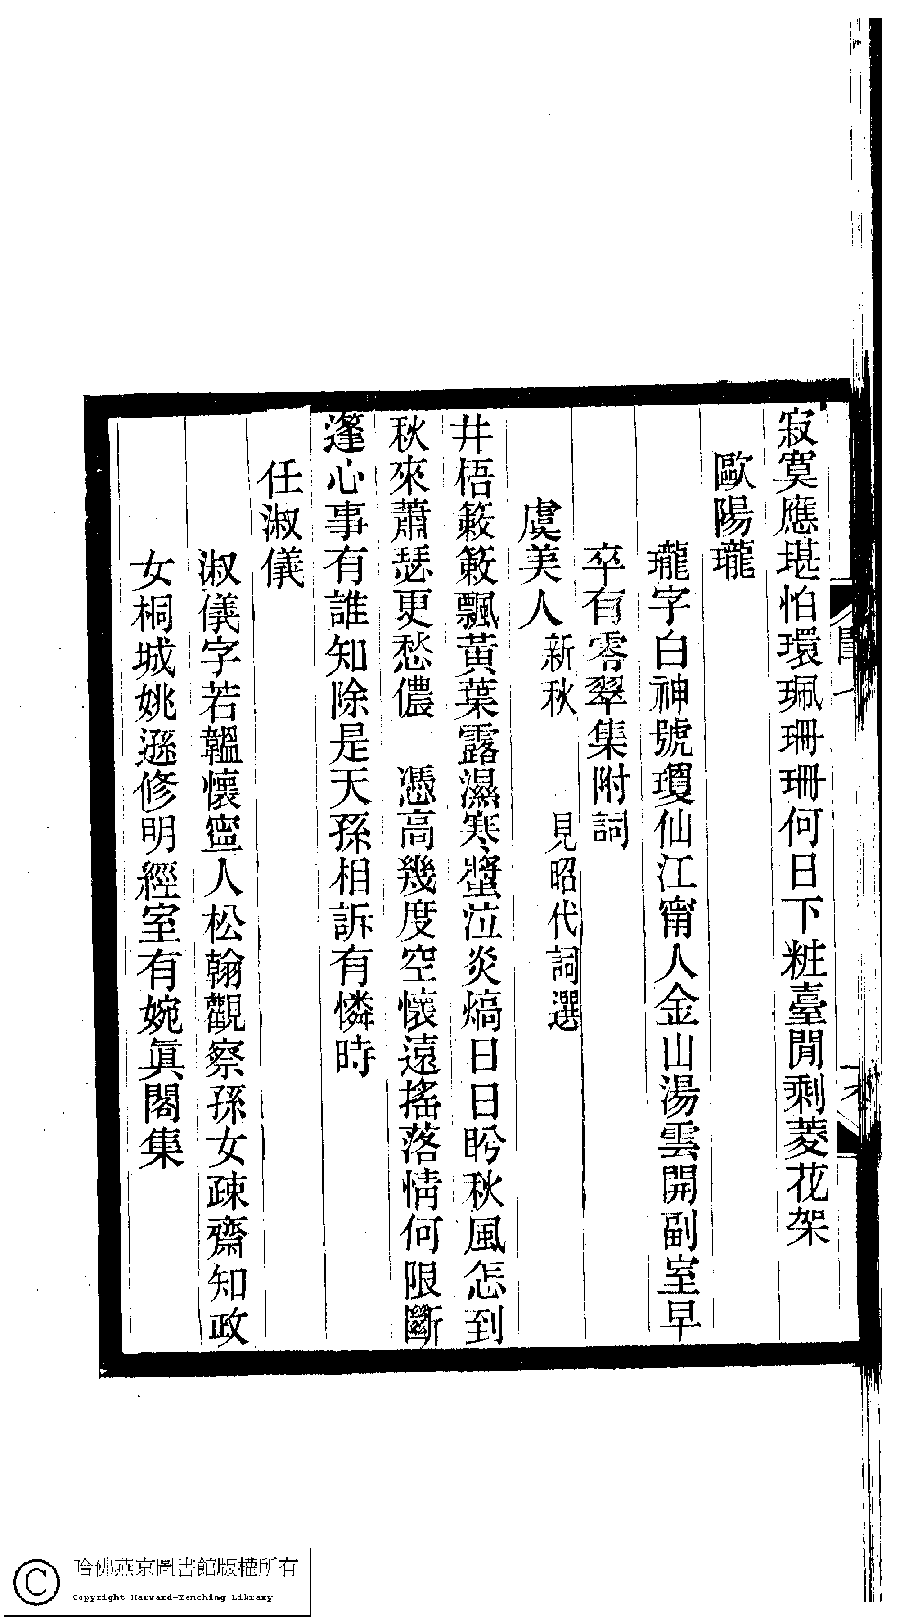 寂寞應堪怕環珮珊珊何日下粧臺閒剩菱花架
歐陽瓏
瓏字白神號瓊仙江甯人金山湯雲開副室早
卒有零翠集附詞
虞美人 新秋 見昭代詞選
井梧簌簌飄黃葉露濕寒螿泣炎熇日日盻秋風怎到
秋來蕭瑟更愁儂 憑高幾度空懷遠搖落情何限斷
篷心事有誰知除是天孫相訴有憐時
任淑儀
淑儀字若韞懷寍人松翰觀察孫女疎齋知政
女桐城姚遜修明經室有婉眞閣集
哈佛燕京圖書館版權所有
Copyright Harvard-Yenching Library